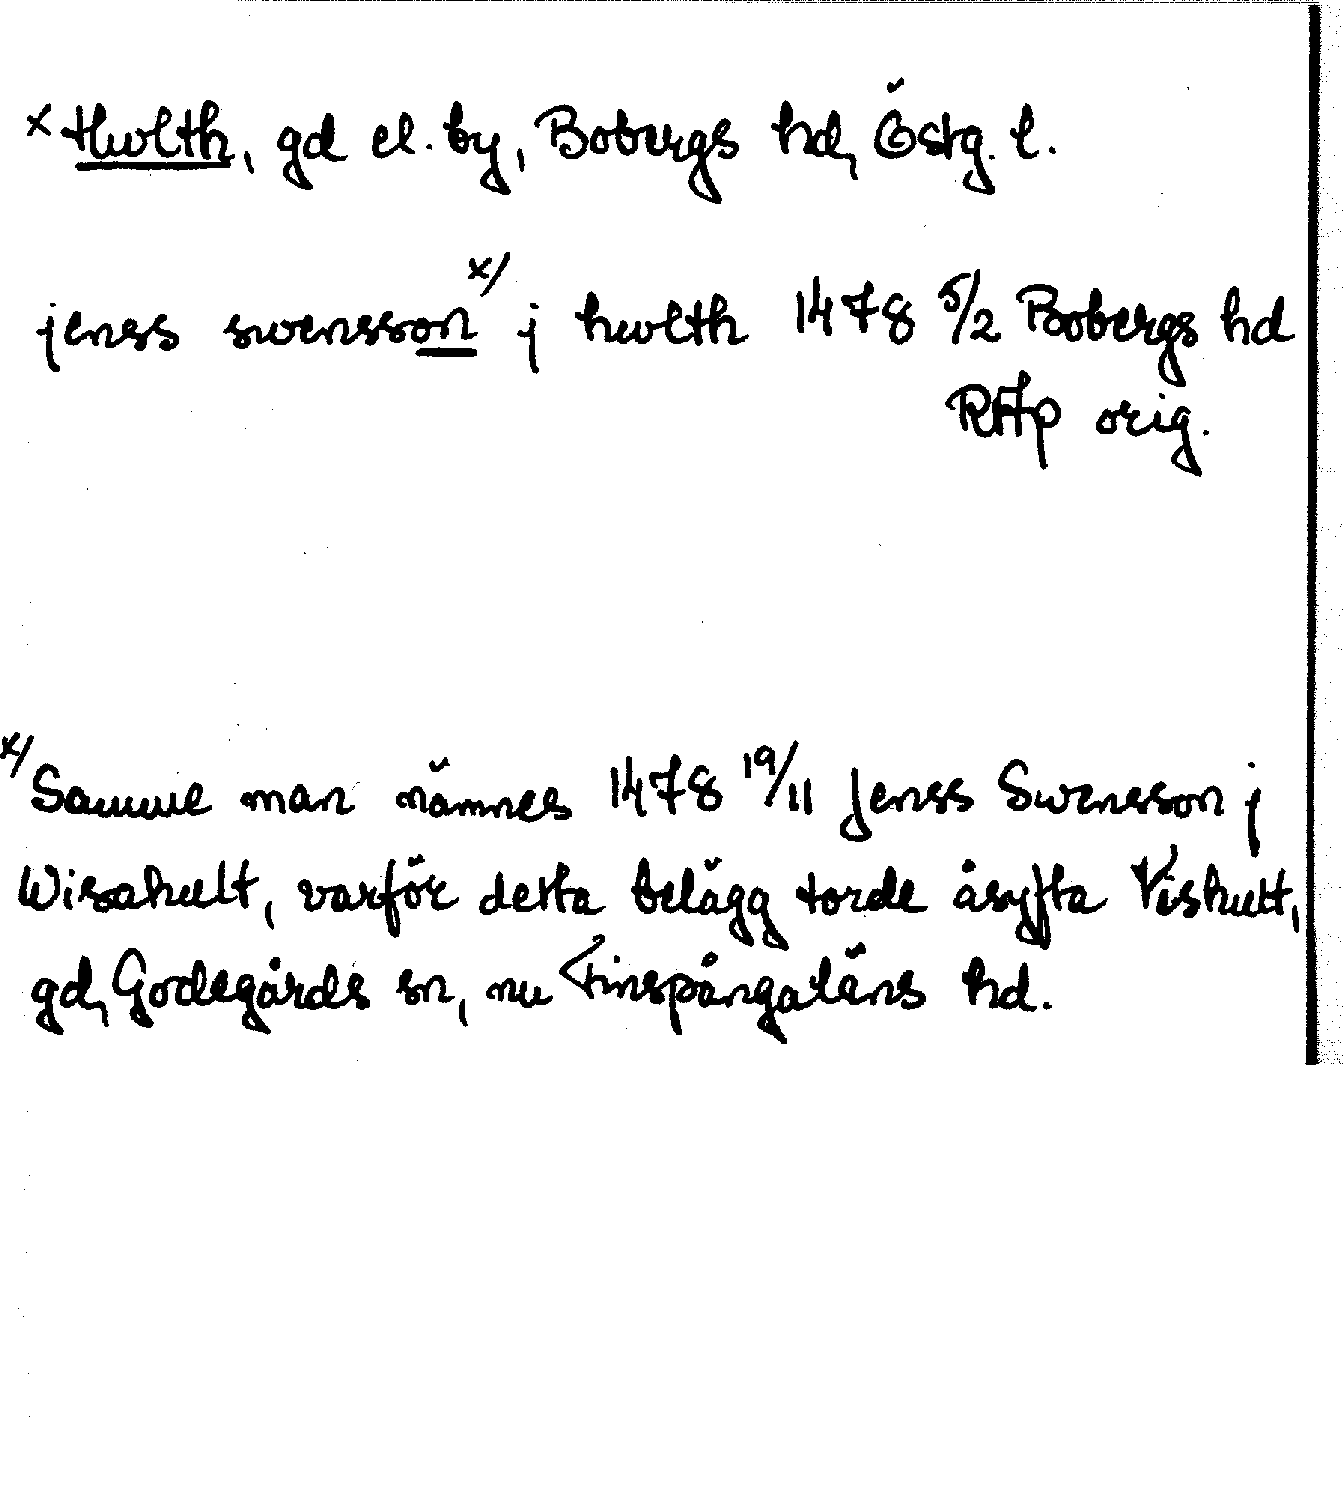 x Hwlth, gd el. by, Bobergs hd, Östg. l.
jenss swensson x/ j hwlth 1478 5/2 Bobergs hd
RAp orig.
x/ Samme man nämnes 1478 19/11 Jenss Swensson j
Wisahult, varför detta belägg torde åsyfta Vishult,
gd, Godegårds sn, nu Finspångaläns hd.